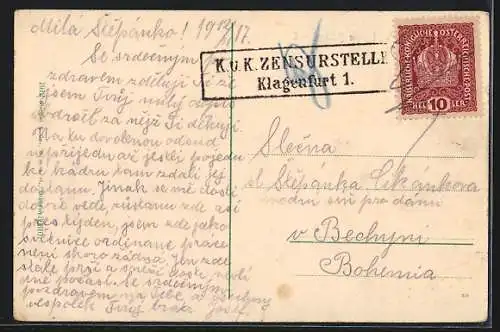 Milá Štěpánko! 19 12/2 17.
Se srdečným po-
zdravem zděluji Ti že
jsem Tvůj milý dopis
obdržel za nějž Ti děkuji.
Na tu dovolenou odsud
nepřijedu až jestli pojedu
ke kádru tam zdali jej
dostanu. Jinak se mě dosti
dobře vede, zůstanu zde asi
přes týden, jsem zde jako
práce
není skoro žádná. Jen zde
stále prší a sněží dosti
počasí. Se srdečným
pozdravem na Tebe a
vespolek Tvůj bratr Josef
K.u.K. ZENSURSTELLE
Klagenfurt 1.
KAISERLICHE KÖNIGLICHE ÖSTERREICHISCHE POST
HEL 10 LER
Slečna
sl Štěpánka Cikánkova
v Bechyni
Bohemia